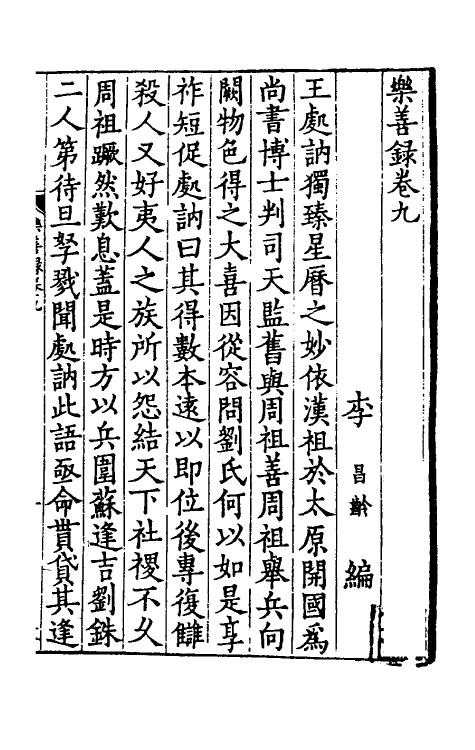 樂善録卷九
李昌齡編
王處訥獨臻星曆之妙依漢祖於太原開國爲
尚書博士判司天監舊與周祖善周祖舉兵向
闕物色得之大喜因從容問劉氏何以如是享
祚短促處訥曰其得數本遠以即位後專復讎
殺人又好夷人之族所以怨結天下社稷不久
周祖蹶然歎息蓋是時方以兵圍蘇逢吉劉銖
二人第待旦孥戮聞處訥此語亟命貰貸其逢
樂善録卷九